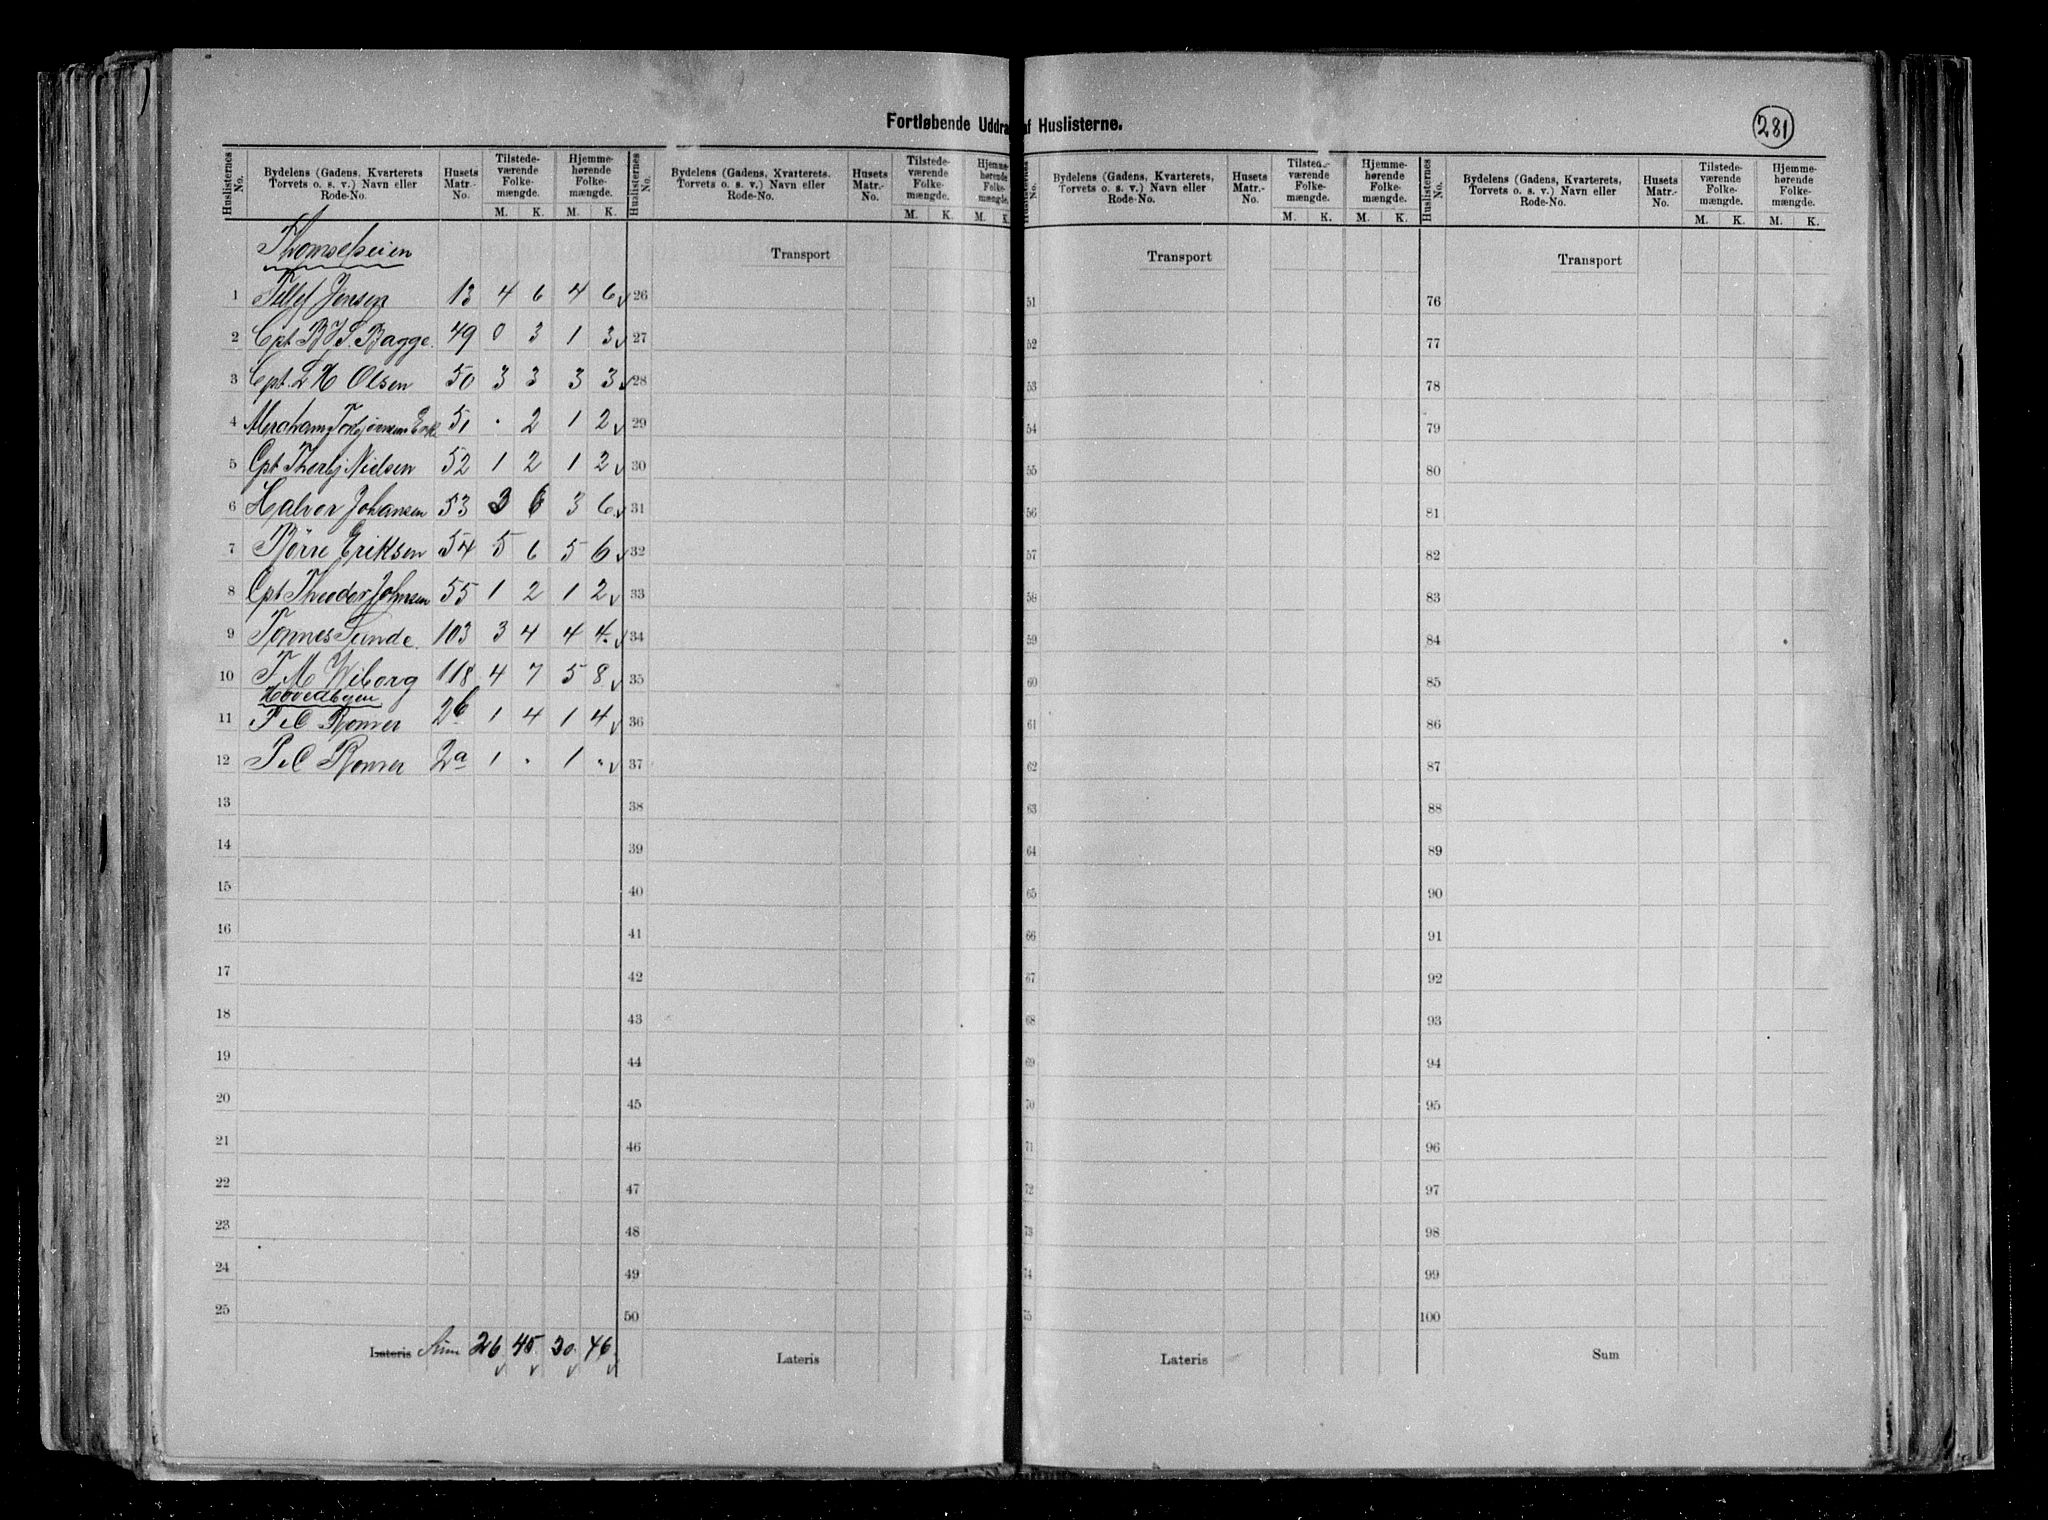 Fortløbende Uddra af Huslisterne.
281
Huslisternes No. Bydelens (Gadens, Kvarterets, Torvets o. s. v.) Navn eller Rode-No. Husets Matr.-No. Tilstede-værende Folke-mængde. Hjemme-hørende Folke-mængde.
M. K. M. K.
Huslisternes No. Bydelens (Gadens, Kvarterets, Torvets o. s. v.) Navn eller Rode-No. Husets Matr.-No. Tilstede-værende Folke-mængde. Hjemme-hørende Folke-mængde.
M. K. M. K.
Huslisternes No. Bydelens (Gadens, Kvarterets, Torvets o. s. v.) Navn eller Rode-No. Husets Matr.-No. Tilstede-værende Folke-mængde. Hjemme-hørende Folke-mængde.
M. K. M. K.
Huslisternes No. Bydelens (Gadens, Kvarterets, Torvets o. s. v.) Navn eller Rode-No. Husets Matr.-No. Tilstede-værende Folke-mængde. Hjemme-hørende Folke-mængde.
M. K. M. K.
Transport Transport Transport
1 Jensen 13 4 6 4 6 26 51 76
2 Cpt. Bagge. 49 0 3 1 3 27 52 77
3 Cpt. L H Olsen 50 3 3 3 3 28 53 78
4 51 . 2 1 2 29 54 79
5 Cpt Thorbj Nielsen 52 1 2 1 2 30 55 80
6 Halvor Johansen 53 3 6 3 6 31 56 81
7 Børre Eriksen 54 5 6 5 6 32 57 82
8 Cpt Theodor Johnsen 55 1 2 1 2 33 58 83
9 Tønnes Sunde 103 3 4 4 4 34 59 84
10 T M Wiborg 118 4 7 5 8 35 60 85
Hovedbyen
11 P C Romer 2b 1 4 1 4 36 61 86
12 P C Romer 2a 1 " 1 " 37 62 87
13 38 63 88
14 39 64 89
15 40 65 90
16 41 66 91
17 42 67 92
18 43 68 93
19 44 69 94
20 45 70 95
21 46 71 96
22 47 72 97
23 48 73 98
24 49 74 99
25 50 75 100
Lateris Sum 26 45 30 46 Lateris Lateris Sum